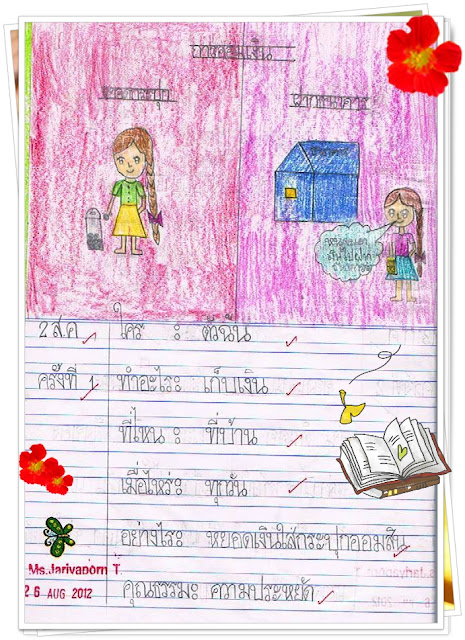 การออมเงิน
หยอดกระปุก
ฝากธนาคาร
ธนาคาร
2 ส.ค. ใคร : ตัวฉัน
ครั้งที่ 1 ทำอะไร: เก็บเงิน
ที่ไหน : ที่บ้าน
เมื่อไหร่: ทุกวัน
อย่างไร: หยอดเงินใส่กระปุกออมสิน
คุณธรรม: ความประหยัด
Ms.Jarivaporn T.
26 AUG 2012